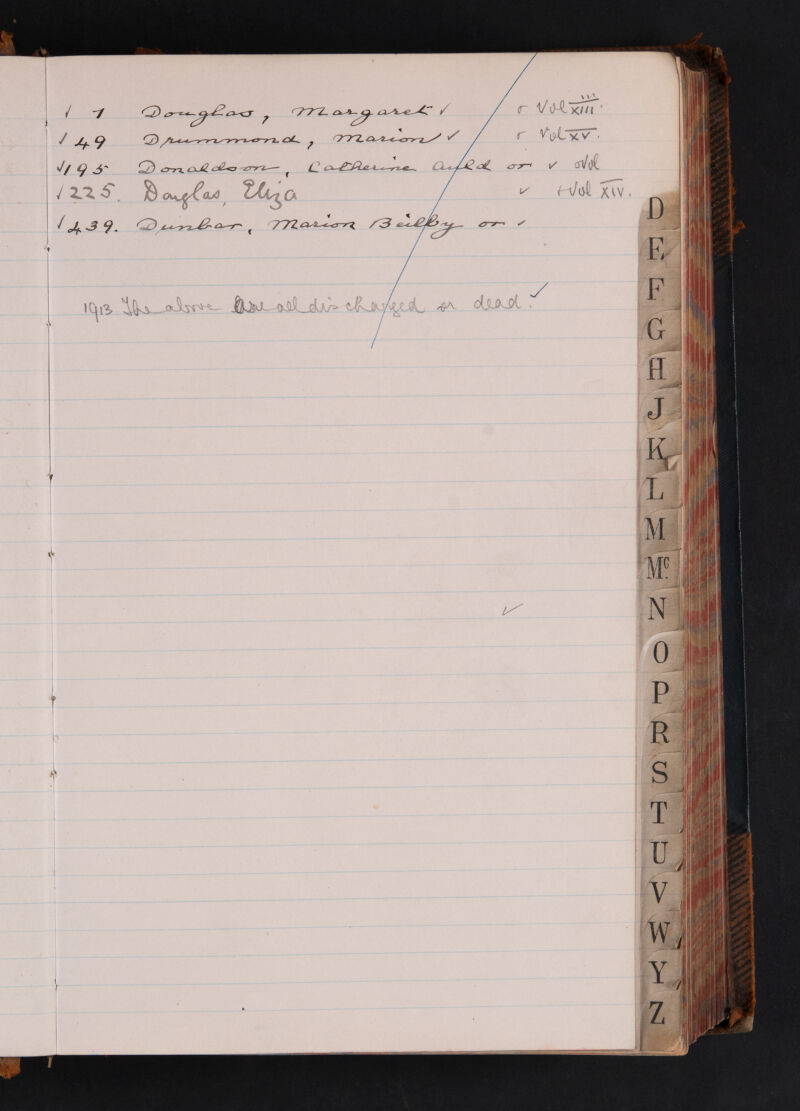 ✓ 1 Douglas, Margaret ✓ r Vol XIII
✓ 49 Drummond, Marion ✓ r Vol XV.
✓ 195 Donaldson, Catherine Auld or ✓ Vol
✓ 225. Douglas, Eliza ✓ + Vol XIV.
✓ 439. Dunbar, Marion Beilby or ✓
1913 The above are all discharged or dead. ✓
✓
D
E
F
G
H
J
K
L
M
Mc.
N
O
P
R
S
T
U
V
W
Y
Z